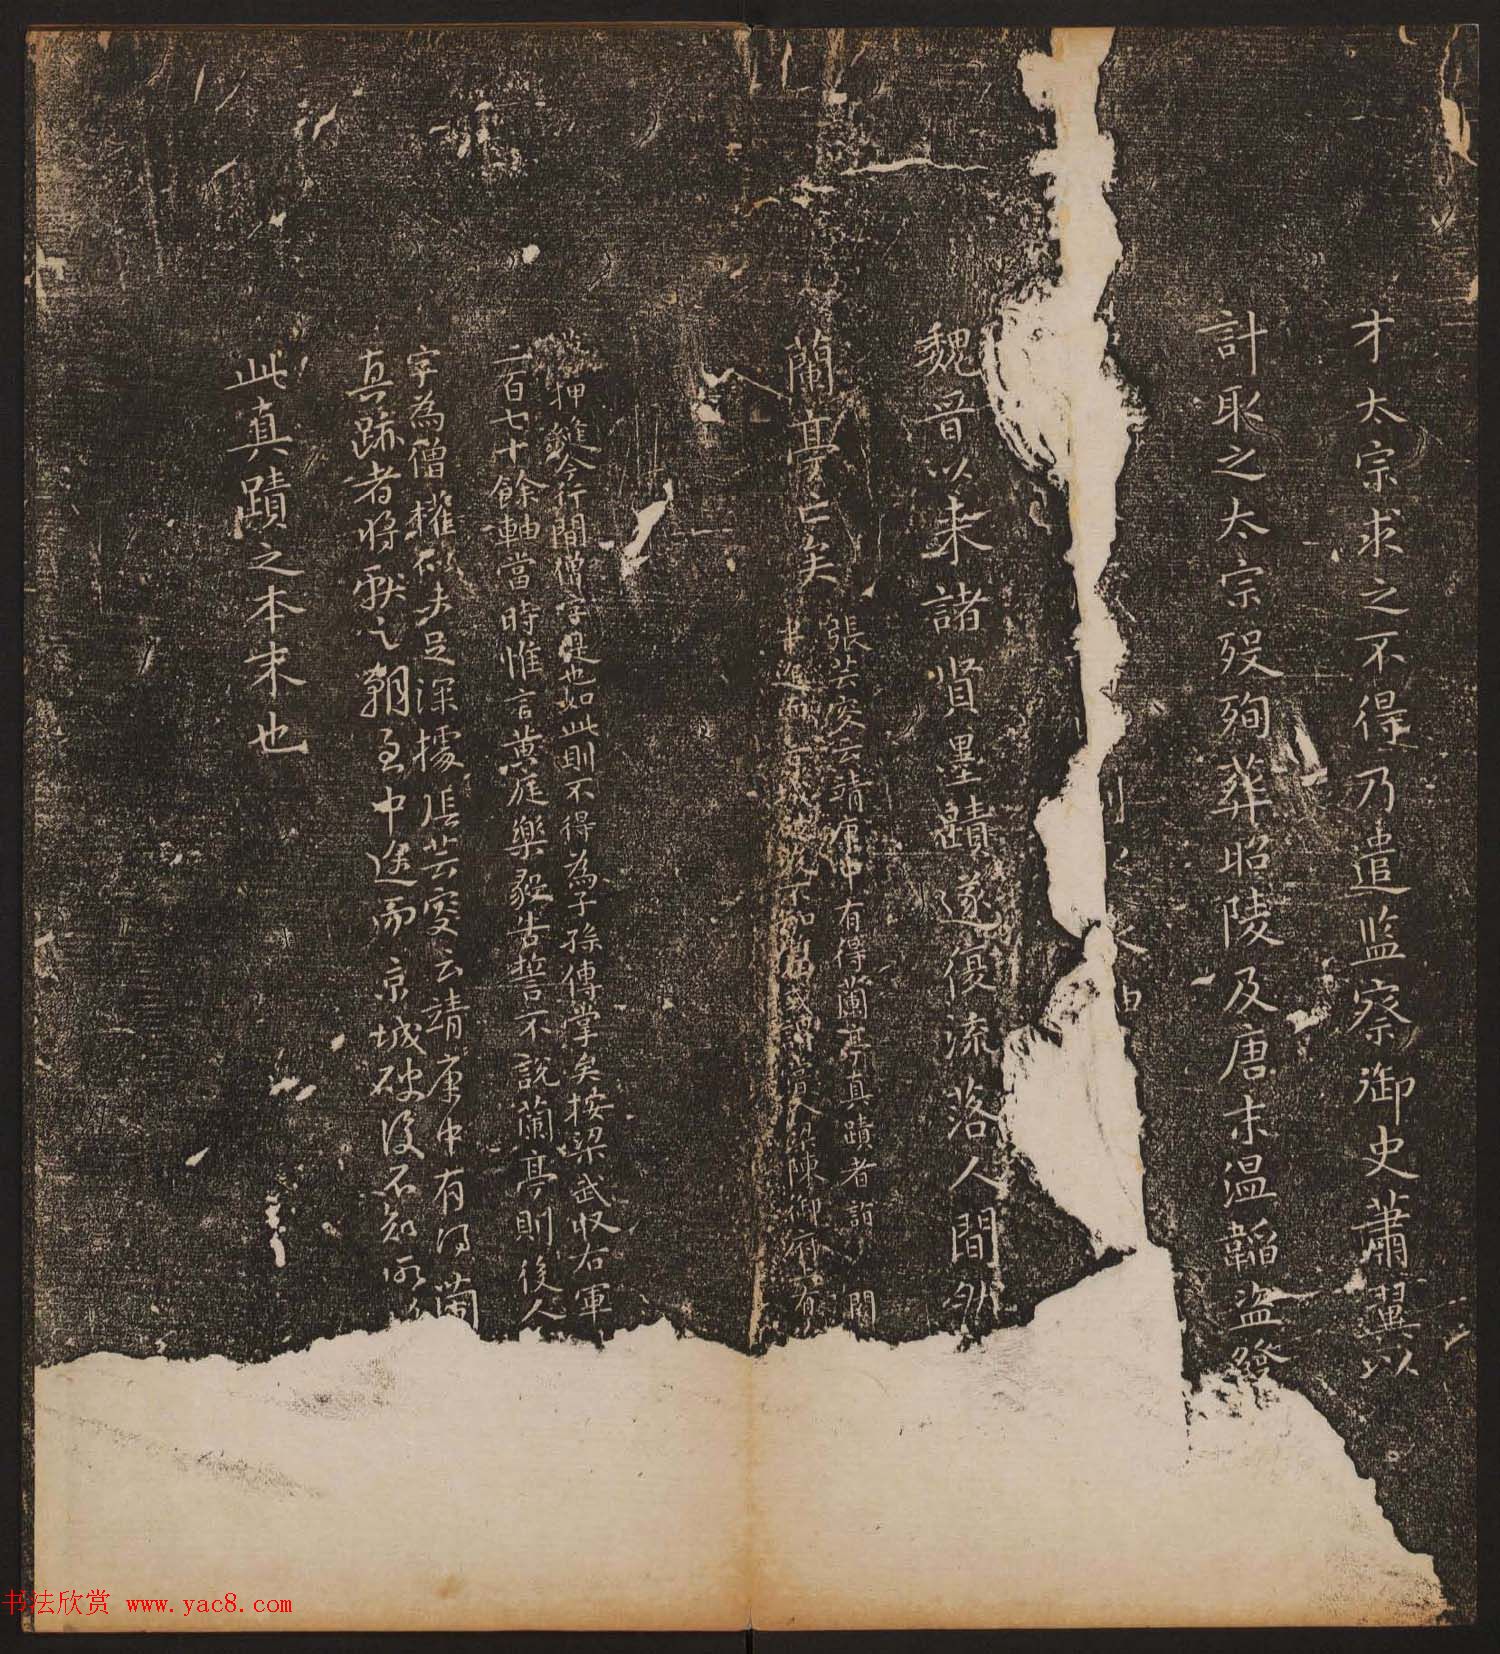 才太宗求之不得乃遣监察御史蕭翼以
計取之太宗殁殉葬昭陵及唐末温韜盗發
魏晋以来諸贤墨蹟遂復流落人間然
蘭亭亡矣
張芸叟云靖康中有得蘭亭真蹟者詣 闕
梁陳御府有
押縫今行間僧字是也如此則不得為子孫傳掌矣按梁武收右軍
二百七十餘軸當時惟言黄庭樂毅告誓不説蘭亭則後人
字為僧權似未足深據張芸叟云靖康中有得蘭
真跡者將獻之朝至中途而京城破後不知所
此真蹟之本末也
书法欣赏 www.yac8.com